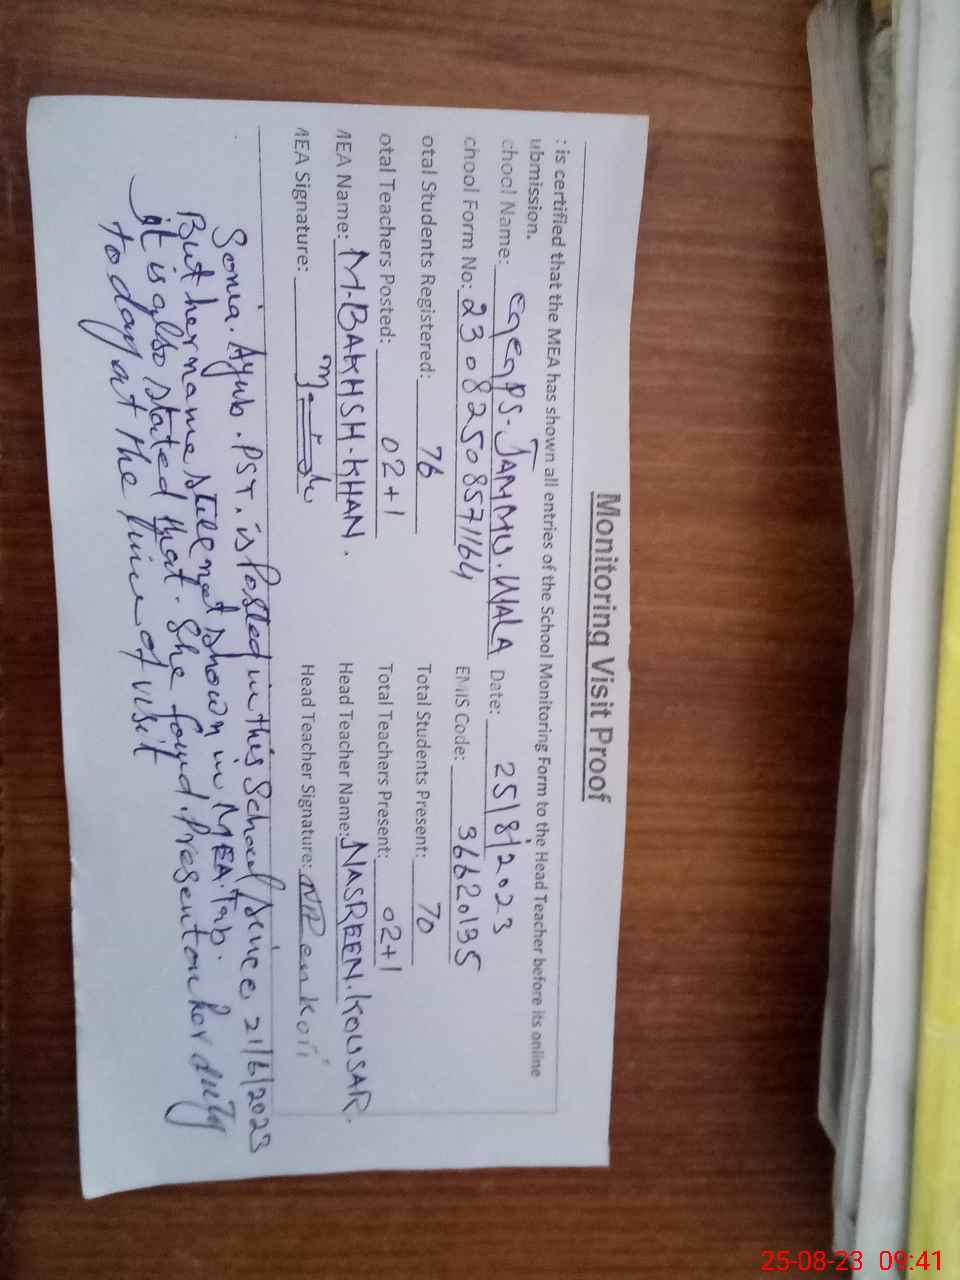 Monitoring Visit Proof
: is certified that the MEA has shown all entries of the School Monitoring Form to the Head Teacher before its online
ubmission.
chool Name: GGCGPS. JAMMU. WALA Date: 25/8/2023
chool Form No: 23082508571164 EMIS Code: 36620195
otal Students Registered: 76 Total Students Present: 70
otal Teachers Posted: 02+1 Total Teachers Present: 02+1
MEA Name: M. BAKHSH. KHAN. Head Teacher Name: NASREEN. KOUSAR.
MEA Signature: Head Teacher Signature:
Sonia. Ayub. PST. is Posted in this School Since 21/6/2023
But her name still not shown in MEA. Tab.
it is also stated that. She found. Present on her duty
today at the time of visit
25-08-23 09:41